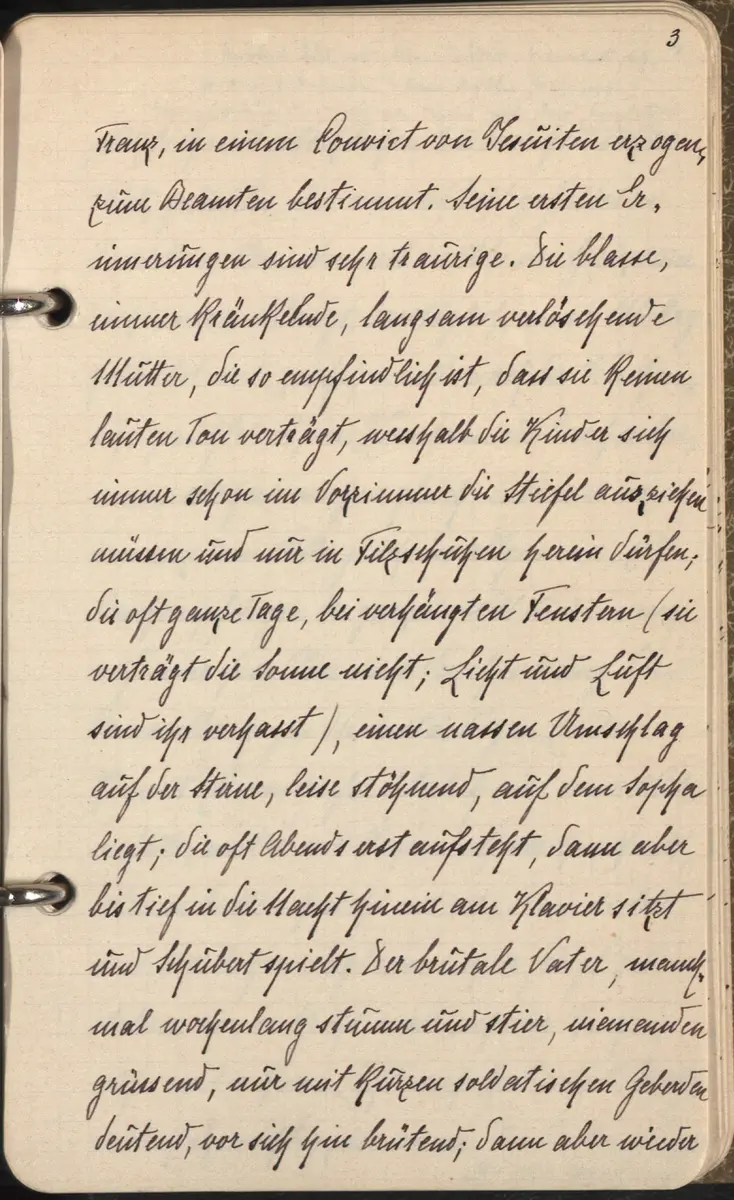 3
Franz, in einem Convict von Jesuiten erzogen,
zum Beamten bestimmt. Seine ersten Er-
innerungen sind sehr traurige. Die blasse,
immer kränkelnde, langsam verlöschende
Mutter, die so empfindlich ist, dass sie keinen
lauten Ton verträgt, weshalb die Kinder sich
immer schon im Vorzimmer die Stiefel ausziehen
müssen und nur in Filzschuhen herein dürfen;
die oft ganze Tage, bei verhängten Fenstern (sie
verträgt die Sonne nicht; Licht und Luft
sind ihr verhasst), einen nassen Umschlag
auf der Stirne, leise stöhnend, auf dem Sopha
liegt; die oft Abends erst aufsteht, dann aber
bis tief in die Nacht hinein am Klavier sitzt
und Schubert spielt. Der brutale Vater, manch-
mal wochenlang stumm und stier, niemanden
grüssend, nur mit kurzen soldatischen Geberden
deutend, vor sich hin brütend; dann aber wieder